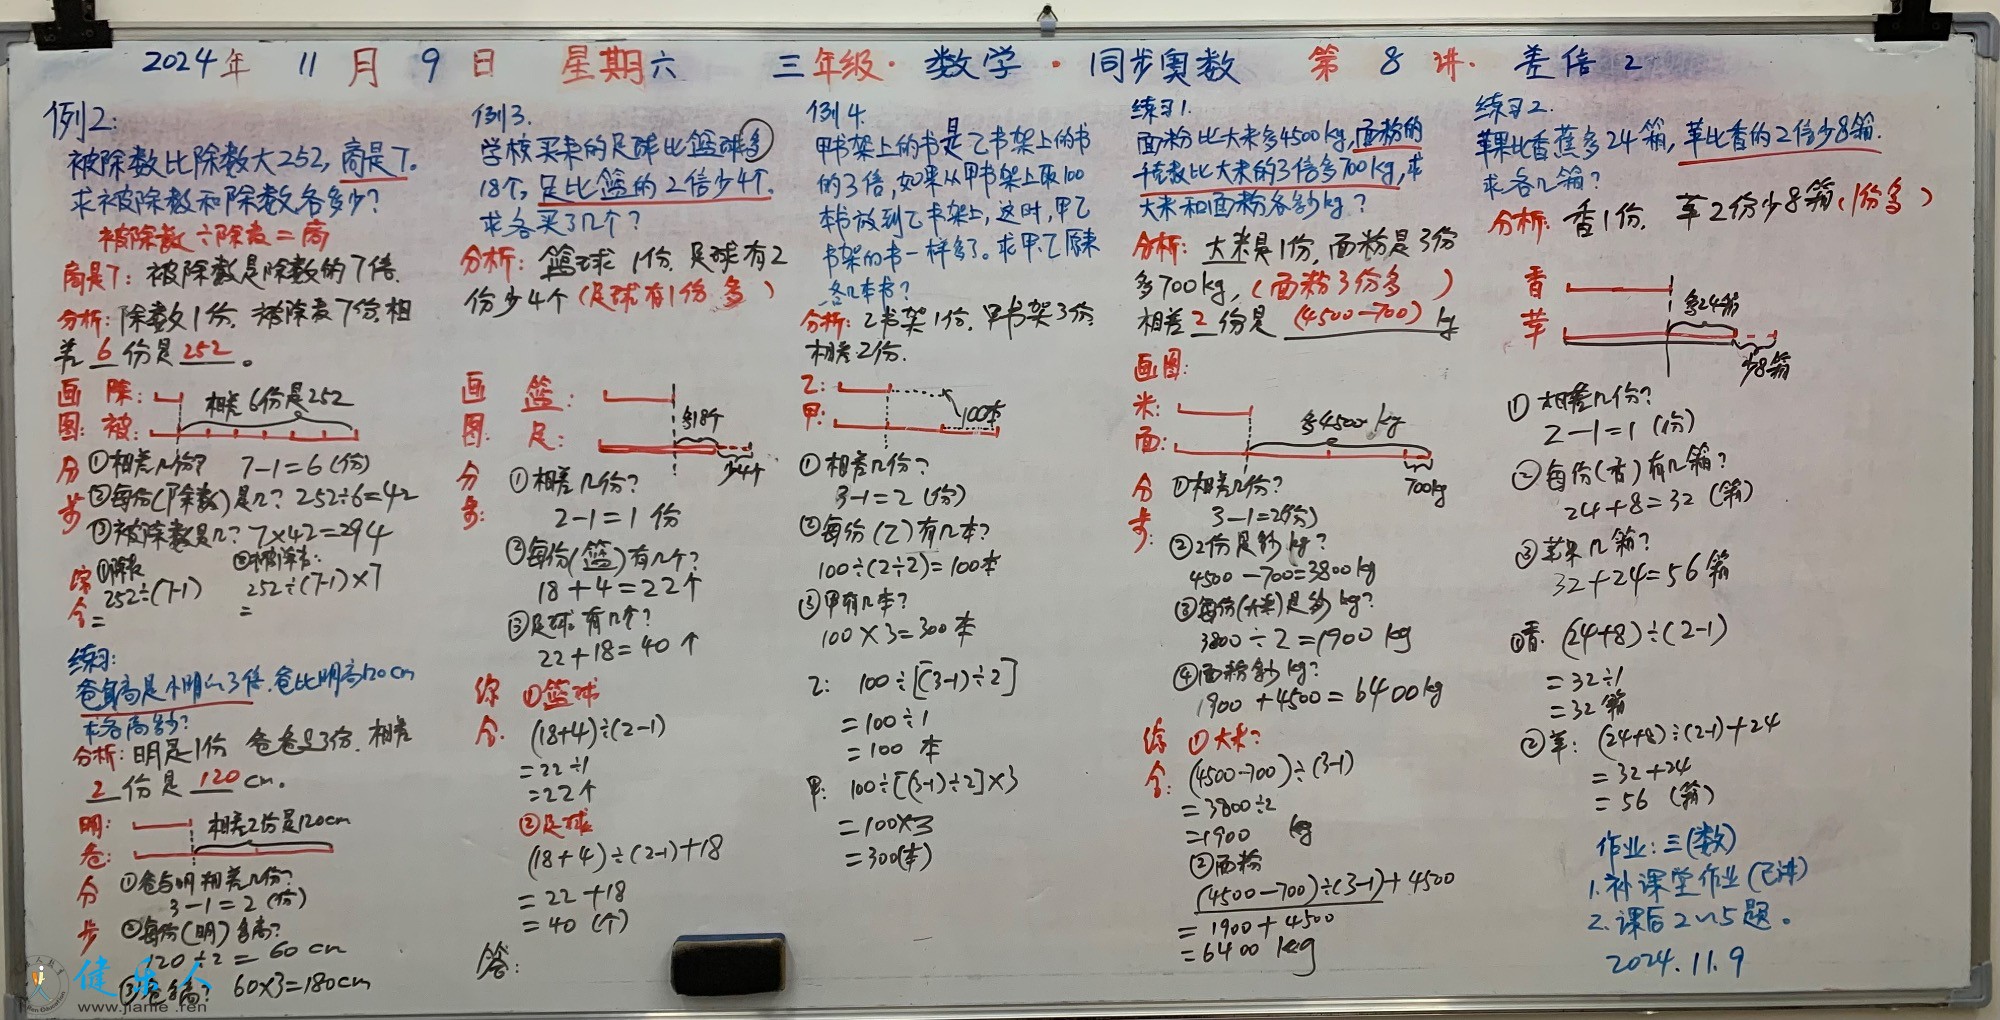 2024年 11月 9日 星期六 三年级·数学·同步奥数 第8讲·差倍2
例2:
被除数比除数大252,商是7。
求被除数和除数各多少?
被除数÷除数=商
商是7:被除数是除数的7倍.
分析:除数1份,被除数7份,相
差6份是252。
画图
除:
被:
相差6份是252
分步
①相差几份? 7-1=6(份)
②每份(除数)是几? 252÷6=42
③被除数是几? 7×42=294
综合
①除数
252÷(7-1)
=
②被除数:
252÷(7-1)×7
=
练习:
爸身高是小明的3倍.爸比明高120cm
求各高多少?
分析:明是1份 爸爸是3份.相差
2份是120cm。
明:
爸:
相差2份是120cm
分步
①爸与明相差几份?
3-1=2(份)
②每份(明)多高?
120÷2=60cm
③爸多高? 60×3=180cm
例3.
学校买来的足球比篮球多
18个,足比篮的2倍少4个.
求各买了几个?
分析:篮球1份.足球有2
份少4个(足球有1份多)
画图:
篮:
足:
多18个
少4个
分步:
①相差几份?
2-1=1份
②每份(篮)有几个?
18+4=22个
③足球有几个?
22+18=40个
综合.
①篮球
(18+4)÷(2-1)
=22÷1
=22个
②足球
(18+4)÷(2-1)+18
=22+18
=40(个)
答:
例4.
甲书架上的书是乙书架上的书
的3倍,如果从甲书架上取100
本书放到乙书架上,这时,甲乙
书架的书一样多了。求甲.乙原来
各几本书?
分析:乙书架1份,甲书架3份,
相差2份.
乙:
甲:
100本
①相差几份?
3-1=2(份)
②每份(乙)有几本?
100÷(2÷2)=100本
③甲有几本?
100×3=300本
乙: 100÷[(3-1)÷2]
=100÷1
=100本
甲: 100÷[(3-1)÷2]×3
=100×3
=300(本)
练习1.
面粉比大米多4500kg,面粉的
千克数比大米的3倍多700kg,求
大米和面粉各多少kg?
分析:大米是1份,面粉是3份
多700kg,(面粉3份多)
相差2份是(4500-700)kg
画图:
米:
面:
多4500kg
700kg
分步:
①相差几份?
3-1=2(份)
②2份是多少kg?
4500-700=3800kg
③每份(大米)是多少kg?
3800÷2=1900kg
④面粉多少kg?
1900+4500=6400kg
综合:
①大米?
(4500-700)÷(3-1)
=3800÷2
=1900kg
②面粉
(4500-700)÷(3-1)+4500
=1900+4500
=6400kg
练习2.
苹果比香蕉多24箱,苹比香的2倍少8箱.
求各几箱?
分析:香1份,苹2份少8箱(1份多)
香
苹
多24箱
少8箱
①相差几份?
2-1=1(份)
②每份(香)有几箱?
24+8=32(箱)
③苹果几箱?
32+24=56箱
①香:(24+8)÷(2-1)
=32÷1
=32箱
②苹:(24+8)÷(2-1)+24
=32+24
=56(箱)
作业:三(数)
1.补课堂作业(已讲)
2.课后2~5题。
2024.11.9
健乐人
www.jianle.ren